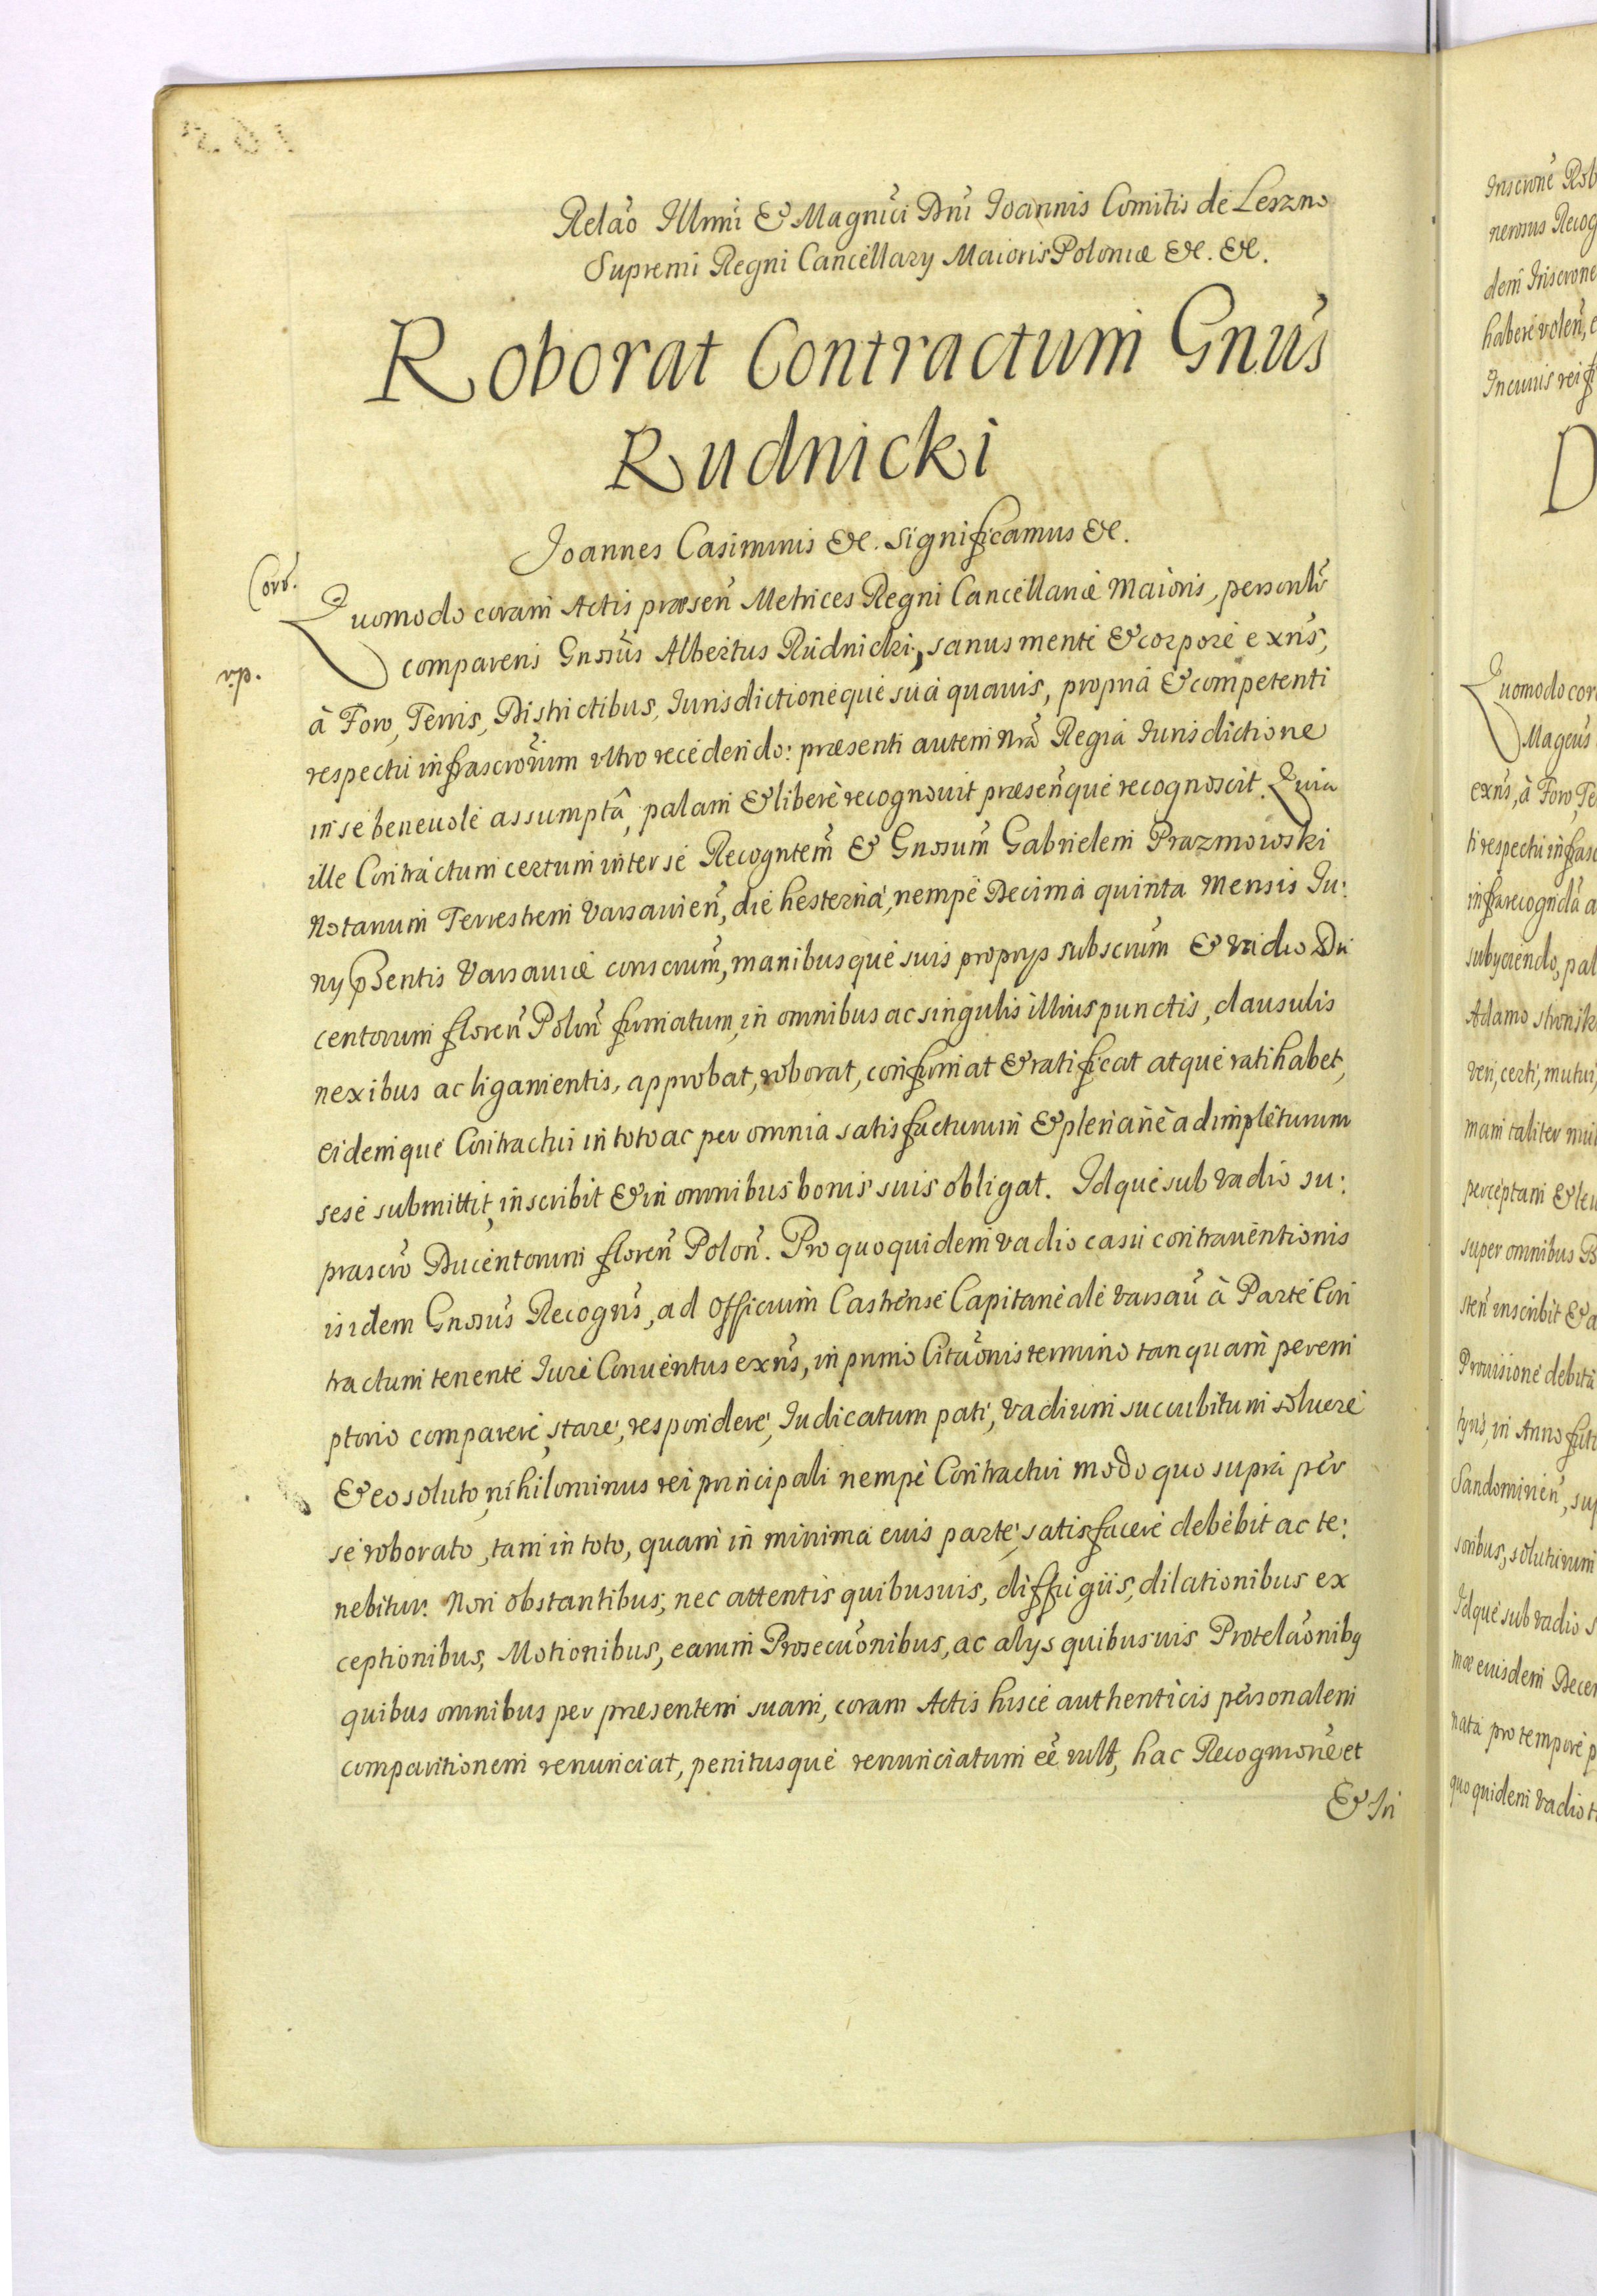 Relaõ Illmi & Magnĩci Dnĩ Joannis Comitis de Leszno
Supremi Regni Cancellary Maioris Poloniæ &c. &c.
Roborat Contractum Gnũs
Rudnicki
Joannes Casimirus &c. significamus &c.
Corõ.
Quomodo coram Actis præseñ Metrices Regni Cancellariæ Maioris, personlr̃
comparens Gnosũs Albertus Rudnicki, sanus mente & corpore exñs,
à Foro, Terris, Districtibus, Iurisdictioneque sua quavis, propria & competenti
respectu infrascroũm ultro recedendo: præsenti autem Nrã Regia Iurisdictione
in se benevole assumptâ, palam & libere recognovit præseñque recognoscit. Quia
ille Contractum certum inter se Recogntem̃ & Gnosum̃ Gabrielem Prazmowski
Notarium Terrestrem Varsavieñ, die hesterna, nempe Decima quinta Mensis Iu:
ny pñtis Varsaviæ conscrum̃, manibusque suis proprys subscrum̃ & vadio Du
centorum floreñ Poloñ firmatum, in omnibus ac singulis illius punctis, clausulis
nexibus ac ligamentis, approbat, roborat, confirmat & ratificat atque ratihabet,
eidemque Contractui in toto ac per omnia satisfacturum & plenariè adimpleturum
sese submittit, inscribit & in omnibus bonis suis obligat. Idque sub vadio su:
prascrõ Ducentorum floreñ Poloñ. Pro quo quidem vadio casu contraventionis
isidem Gnosũs Recogñs, ad Officium Castrense Capitaneale Varsav̄ à Parte Con
tractum tenente Iure Conventus exñs, in primo Citaõnis termino tanquam perem
ptorio comparere, stare, respondere, Iudicatum pati, vadium succubitum solvere
& eo soluto, nihilominus rei principali nempe Contractui modo quo supra per
se roborato, tam in toto, quam in minima eius parte, satisfacere debebit ac te:
nebitur. Non obstantibus, nec attentis quibusvis, diffugiis, dilationibus ex
ceptionibus, Motionibus, earum Prosecuõnibus, ac alys quibusvis Protelaõnibq
quibus omnibus per præsentem suam, coram Actis hisce authenticis personalem
comparitionem renunciat, penitusque renunciatum eẽ vult, hac Recogniõne et
& In